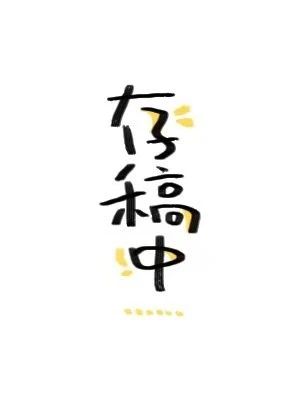 存稿中
……